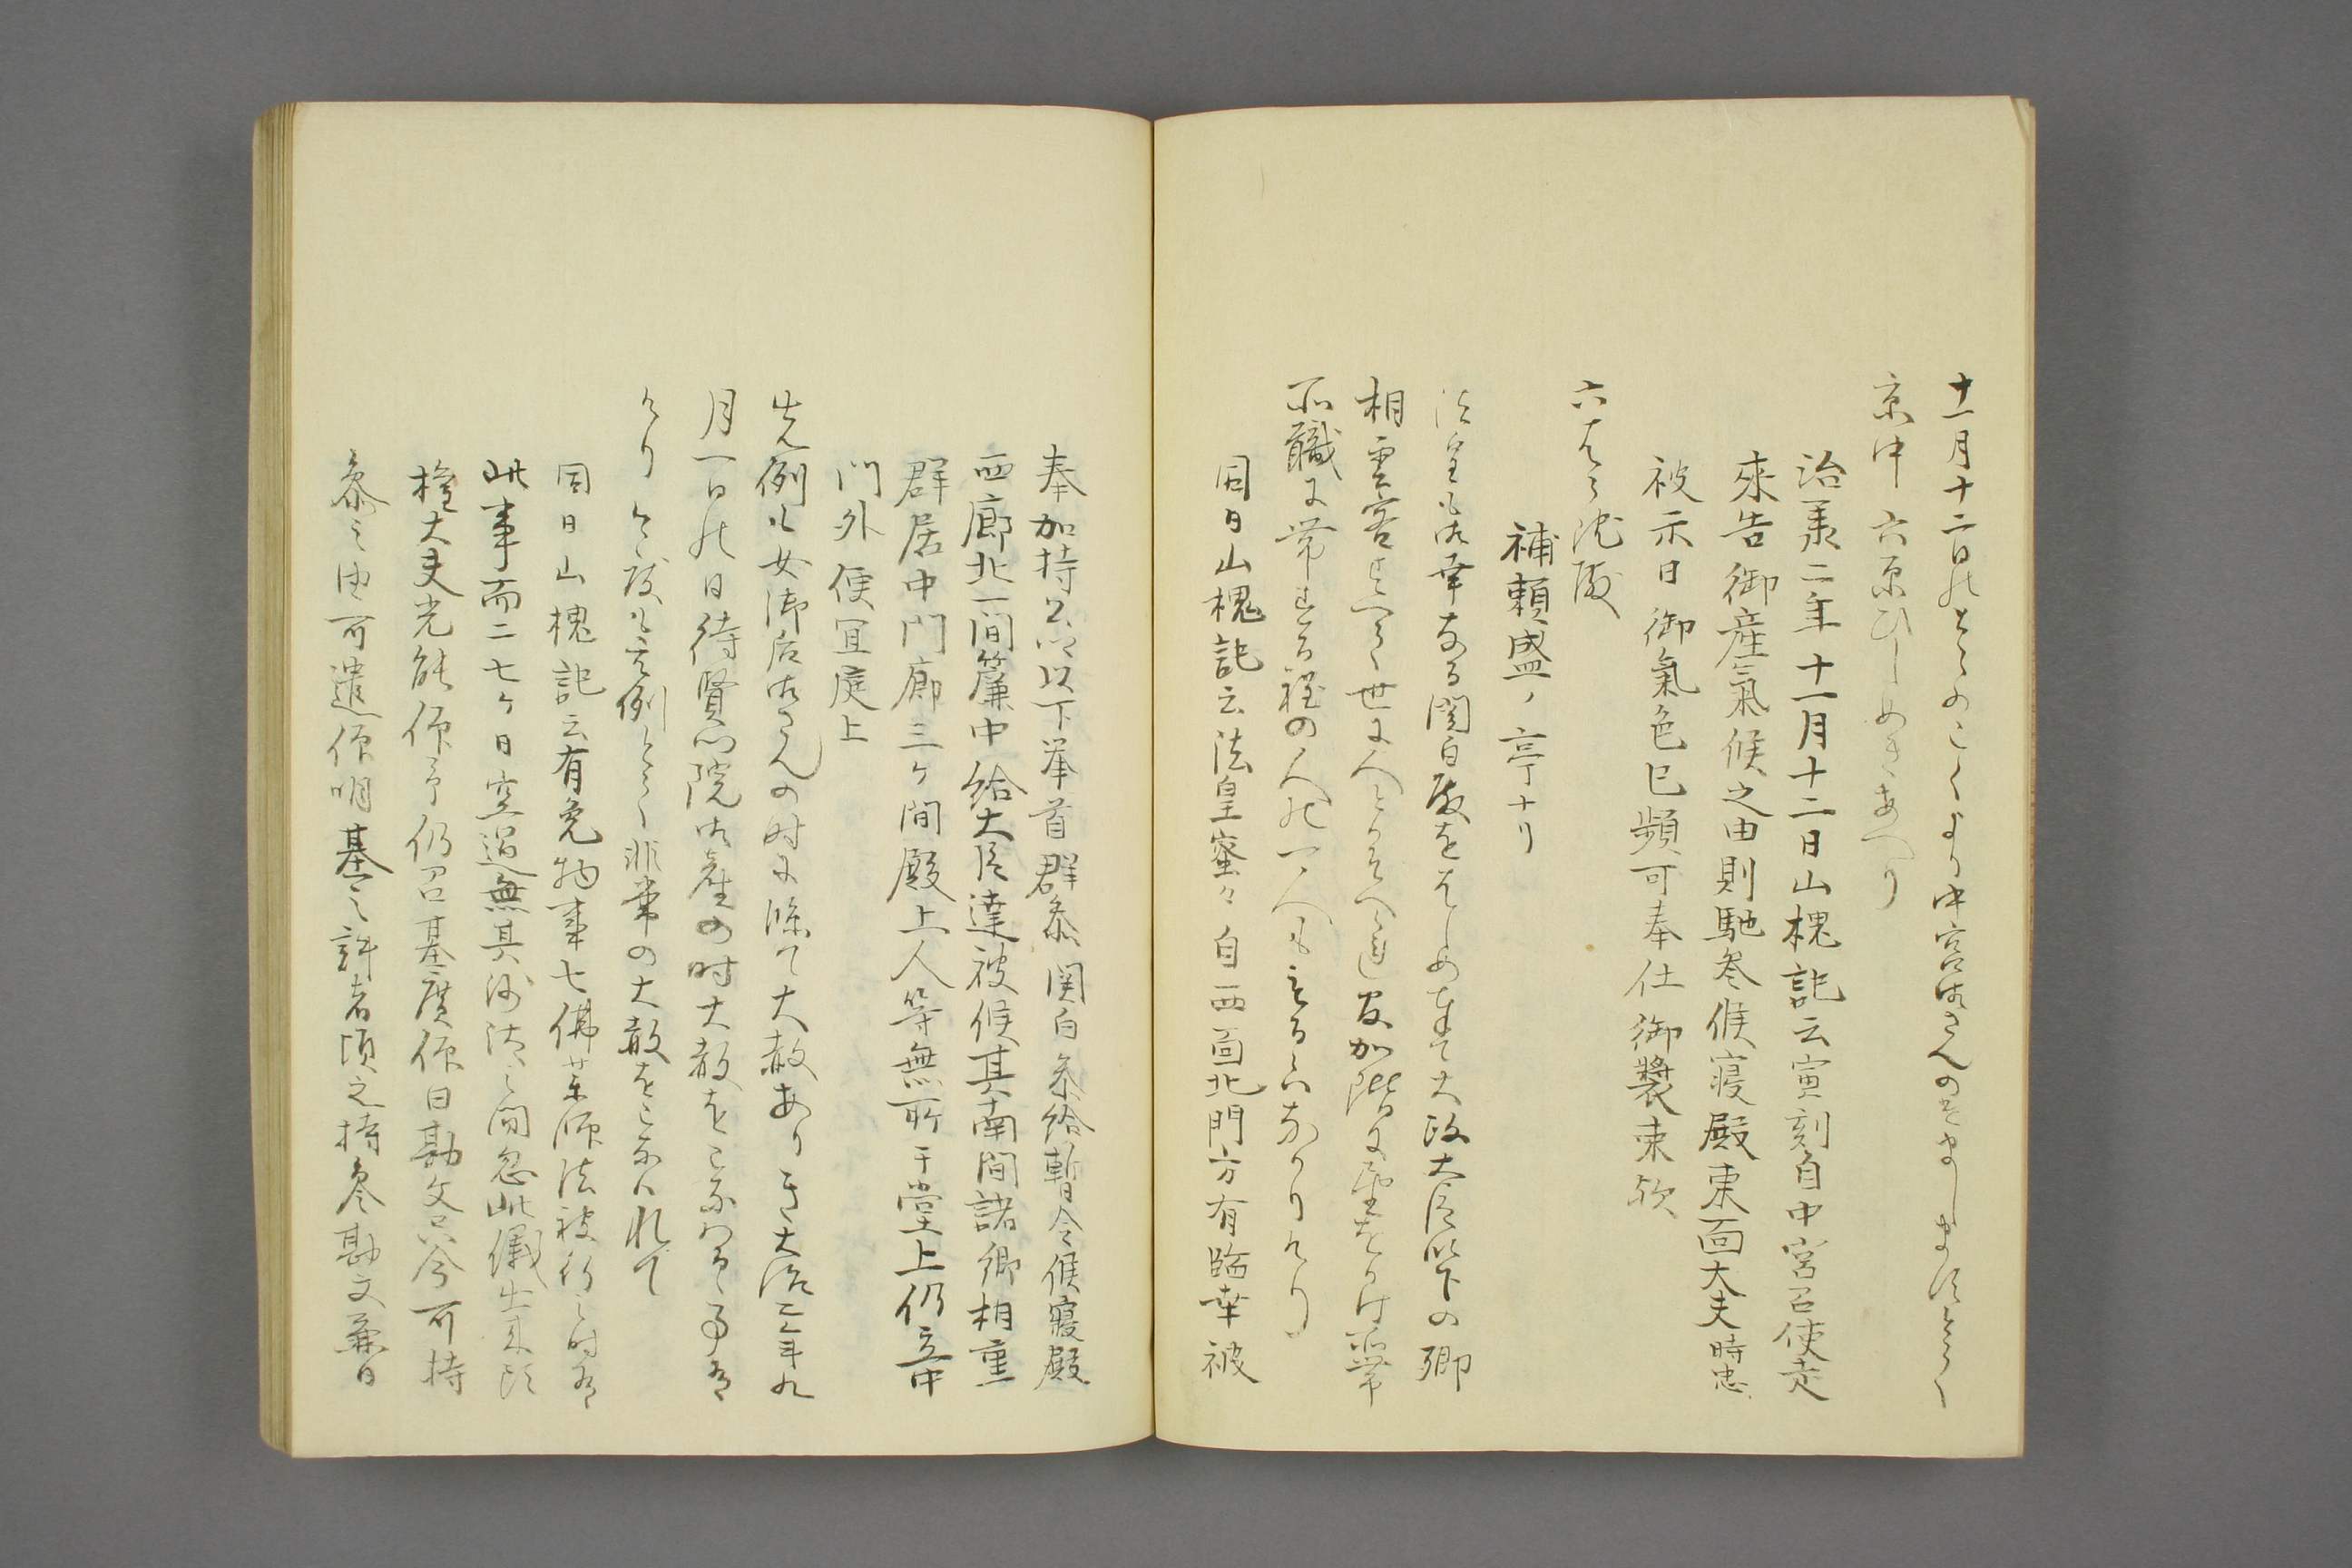 十一月十二日のとらのこくより中宮御さんのけましますとて
京中六原ひしめきあへり
治承二年十一月十二日山槐記云寅刻自中宮召使走
来告御産氣候之由則馳参候寝殿東面大夫時忠
被示曰御氣色已頻可奉仕御装束欤
六はら池殿
補頼盛ノ亭ナリ
法皇も御幸なる関白殿をはしめ奉て大政大臣以下の卿
相雲客すへて世に人とかそへられ官加階に望をかけ所帯
所職に帯する程の人の一人ももるゝはなかりけり
同日山槐記云法皇蜜々自西面北門方有臨幸被
奉加持公卿以下挙首群参関白参給暫令候寝殿
西廊北一間簾中給大臣達被候其南間諸卿相重
群居中門廊三ケ間殿上人等無所于堂上仍立中
門外便冝庭上
先例も女御后御さんの时に臨て大赦ありき大治二年九
月一日の日待賢门院御産の时大赦をこなはるゝ事有
けり今度も其例とて非常の大赦をこなはれて
同日山槐記云有免物事七佛薬師法被行之时有
此事而二七ケ日空過無其沙汰之間忽此儀出来欤
権大夫光能仰予仍召基廣仰曰勘文只今可持
参之由可遣仰明基之許者頃之持参勘文兼日